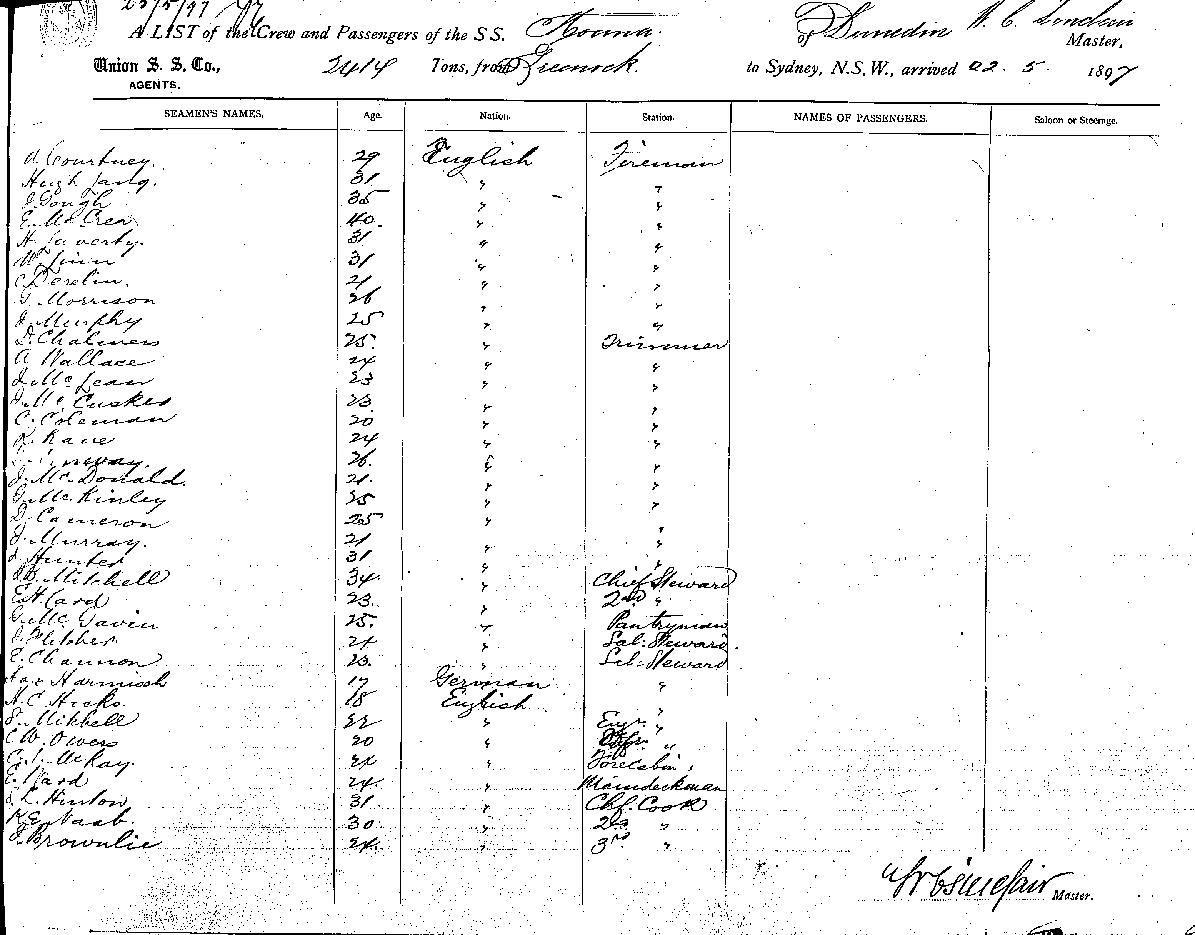 25/5/97
A LIST of the Crew and Passengers of the S S. of Dunedin Master,
Union S. S. Co., 2414 Tons, from Greenock. to Sydney, N.S.W., arrived 22. 5. 1897
AGENTS.
SEAMEN'S NAMES. Age. Nation. Station. NAMES OF PASSENGERS. Saloon or Steerage.
A. Courtney. 29 English Fireman
Hugh 31 " "
J. Gough 35 " "
E. McCrea 40. " "
H. Laverty. 31 " "
31 " "
" "
G. Morrison 26 " "
J. Murphy 25 " "
D. Chalmers 25. " Trimmer
A. Wallace 24 " "
J. McLean 23 " "
J. McCusker 23 " "
C. Coleman 20 " "
R. Kane 24 " "
26. " "
J. McDonald. 21. " "
G. McKinley 25 " "
D. Cameron 25 "
J. Murray. 21 " "
J. Hunter 31 " "
Mitchell 34. " Chief Steward
E. H. Card 23. " 2nd "
G. McGavin 25. " Pantryman
J. Fletcher 24 " Sal: Steward.
E. Channon 23. " Sal: Steward
Harmisch 17 German "
A. C. Hicks. 18 English "
Mitchell 22 " Engr. "
C. W. Owers 20 " "
McKay. " Forecabin "
E. Ward 24. " Maindeckman
Hinton 31 " Chf. Cook
Naab. 30. " 2nd "
J. Brownlie 24. " 3rd "
W C Sinclair Master.